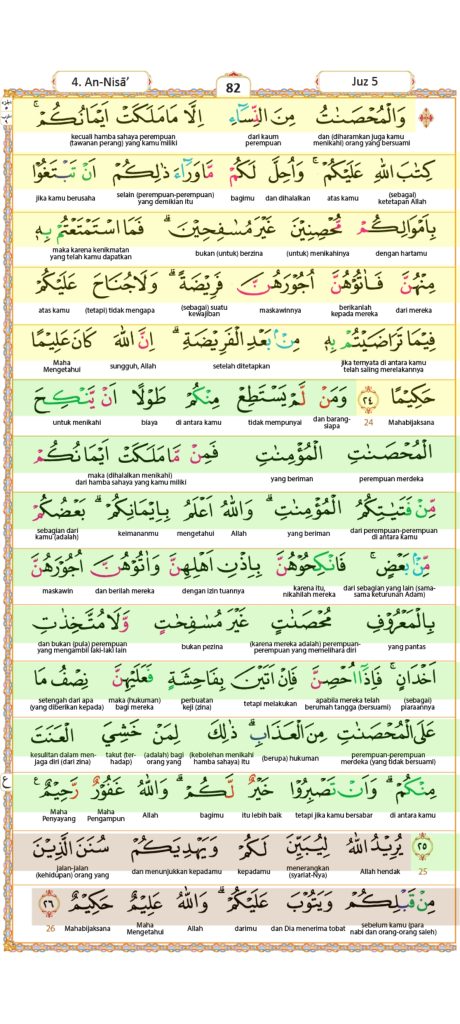 4. An-Nisā’
82
Juz 5
وَالْمُحْصَنٰتُ مِنَ النِّسَاۤءِ اِلَّا مَا مَلَكَتْ اَيْمَانُكُمْ ۚ
dan (diharamkan juga kamu menikahi) orang yang bersuami
dari kaum perempuan
kecuali hamba sahaya perempuan (tawanan perang) yang kamu miliki
كِتٰبَ اللّٰهِ عَلَيْكُمْ ۚ وَاُحِلَّ لَكُمْ مَّا وَرَاۤءَ ذٰلِكُمْ اَنْ تَبْتَغُوْا
(sebagai) ketetapan Allah
atas kamu
dan dihalalkan
bagimu
selain (perempuan-perempuan) yang demikian itu
jika kamu berusaha
بِاَمْوَالِكُمْ مُّحْصِنِيْنَ غَيْرَ مُسٰفِحِيْنَ ۗ فَمَا اسْتَمْتَعْتُمْ بِهٖ
dengan hartamu
(untuk) menikahinya
bukan (untuk) berzina
maka karena kenikmatan yang telah kamu dapatkan
مِنْهُنَّ فَاٰتُوْهُنَّ اُجُوْرَهُنَّ فَرِيْضَةً ۗ وَلَا جُنَاحَ عَلَيْكُمْ
dari mereka
berikanlah kepada mereka
maskawinnya
(sebagai) suatu kewajiban
(tetapi) tidak mengapa
atas kamu
فِيْمَا تَرَاضَيْتُمْ بِهٖ مِنْۢ بَعْدِ الْفَرِيْضَةِ ۗ اِنَّ اللّٰهَ كَانَ عَلِيْمًا
jika ternyata di antara kamu telah saling merelakannya
setelah ditetapkan
sungguh, Allah
Maha Mengetahui
حَكِيْمًا ٢٤ وَمَنْ لَّمْ يَسْتَطِعْ مِنْكُمْ طَوْلًا اَنْ يَّنْكِحَ
Mahabijaksana
24
dan barang-siapa
tidak mempunyai
di antara kamu
biaya
untuk menikahi
الْمُحْصَنٰتِ الْمُؤْمِنٰتِ فَمِنْ مَّا مَلَكَتْ اَيْمَانُكُمْ
perempuan merdeka
yang beriman
maka (dihalalkan menikahi) dari hamba sahaya yang kamu miliki
مِّنْ فَتَيٰتِكُمُ الْمُؤْمِنٰتِ ۗ وَاللّٰهُ اَعْلَمُ بِاِيْمَانِكُمْ ۗ بَعْضُكُمْ
dari perempuan-perempuan di antara kamu
yang beriman
Allah
mengetahui
keimananmu
sebagian dari kamu (adalah)
مِّنْۢ بَعْضٍ ۚ فَانْكِحُوْهُنَّ بِاِذْنِ اَهْلِهِنَّ وَاٰتُوْهُنَّ اُجُوْرَهُنَّ
dari sebagian yang lain (sama-sama keturunan Adam)
karena itu, nikahilah mereka
dengan izin tuannya
dan berilah mereka
maskawin
بِالْمَعْرُوْفِ مُحْصَنٰتٍ غَيْرَ مُسٰفِحٰتٍ وَّلَا مُتَّخِذٰتِ
yang pantas
(karena mereka adalah) perempuan-perempuan yang memelihara diri
bukan pezina
dan bukan (pula) perempuan yang mengambil laki-laki lain
اَخْدَانٍ ۚ فَاِذَآ اُحْصِنَّ فَاِنْ اَتَيْنَ بِفَاحِشَةٍ فَعَلَيْهِنَّ نِصْفُ مَا
(sebagai) piaraannya
apabila mereka telah berumah tangga (bersuami)
tetapi melakukan
perbuatan keji (zina)
maka (hukuman) bagi mereka
setengah dari apa (yang diberikan kepada)
عَلَى الْمُحْصَنٰتِ مِنَ الْعَذَابِ ۗ ذٰلِكَ لِمَنْ خَشِيَ الْعَنَتَ
perempuan-perempuan merdeka (yang tidak bersuami)
(berupa) hukuman
(kebolehan menikahi hamba sahaya) itu
(adalah) bagi orang yang
takut (ter-hadap)
kesulitan dalam men-jaga diri (dari zina)
مِنْكُمْ ۗ وَاَنْ تَصْبِرُوْا خَيْرٌ لَّكُمْ ۗ وَاللّٰهُ غَفُوْرٌ رَّحِيْمٌ ࣖ
ع
di antara kamu
tetapi jika kamu bersabar
itu lebih baik
bagimu
Allah
Maha Pengampun
Maha Penyayang
٢٥ يُرِيْدُ اللّٰهُ لِيُبَيِّنَ لَكُمْ وَيَهْدِيَكُمْ سُنَنَ الَّذِيْنَ
25
Allah hendak
menerangkan (syariat-Nya)
kepadamu
dan menunjukkan kepadamu
jalan-jalan (kehidupan) orang yang
مِنْ قَبْلِكُمْ وَيَتُوْبَ عَلَيْكُمْ ۗ وَاللّٰهُ عَلِيْمٌ حَكِيْمٌ ٢٦
sebelum kamu (para nabi dan orang-orang saleh)
dan Dia menerima tobat
darimu
Allah
Maha Mengetahui
Mahabijaksana
26